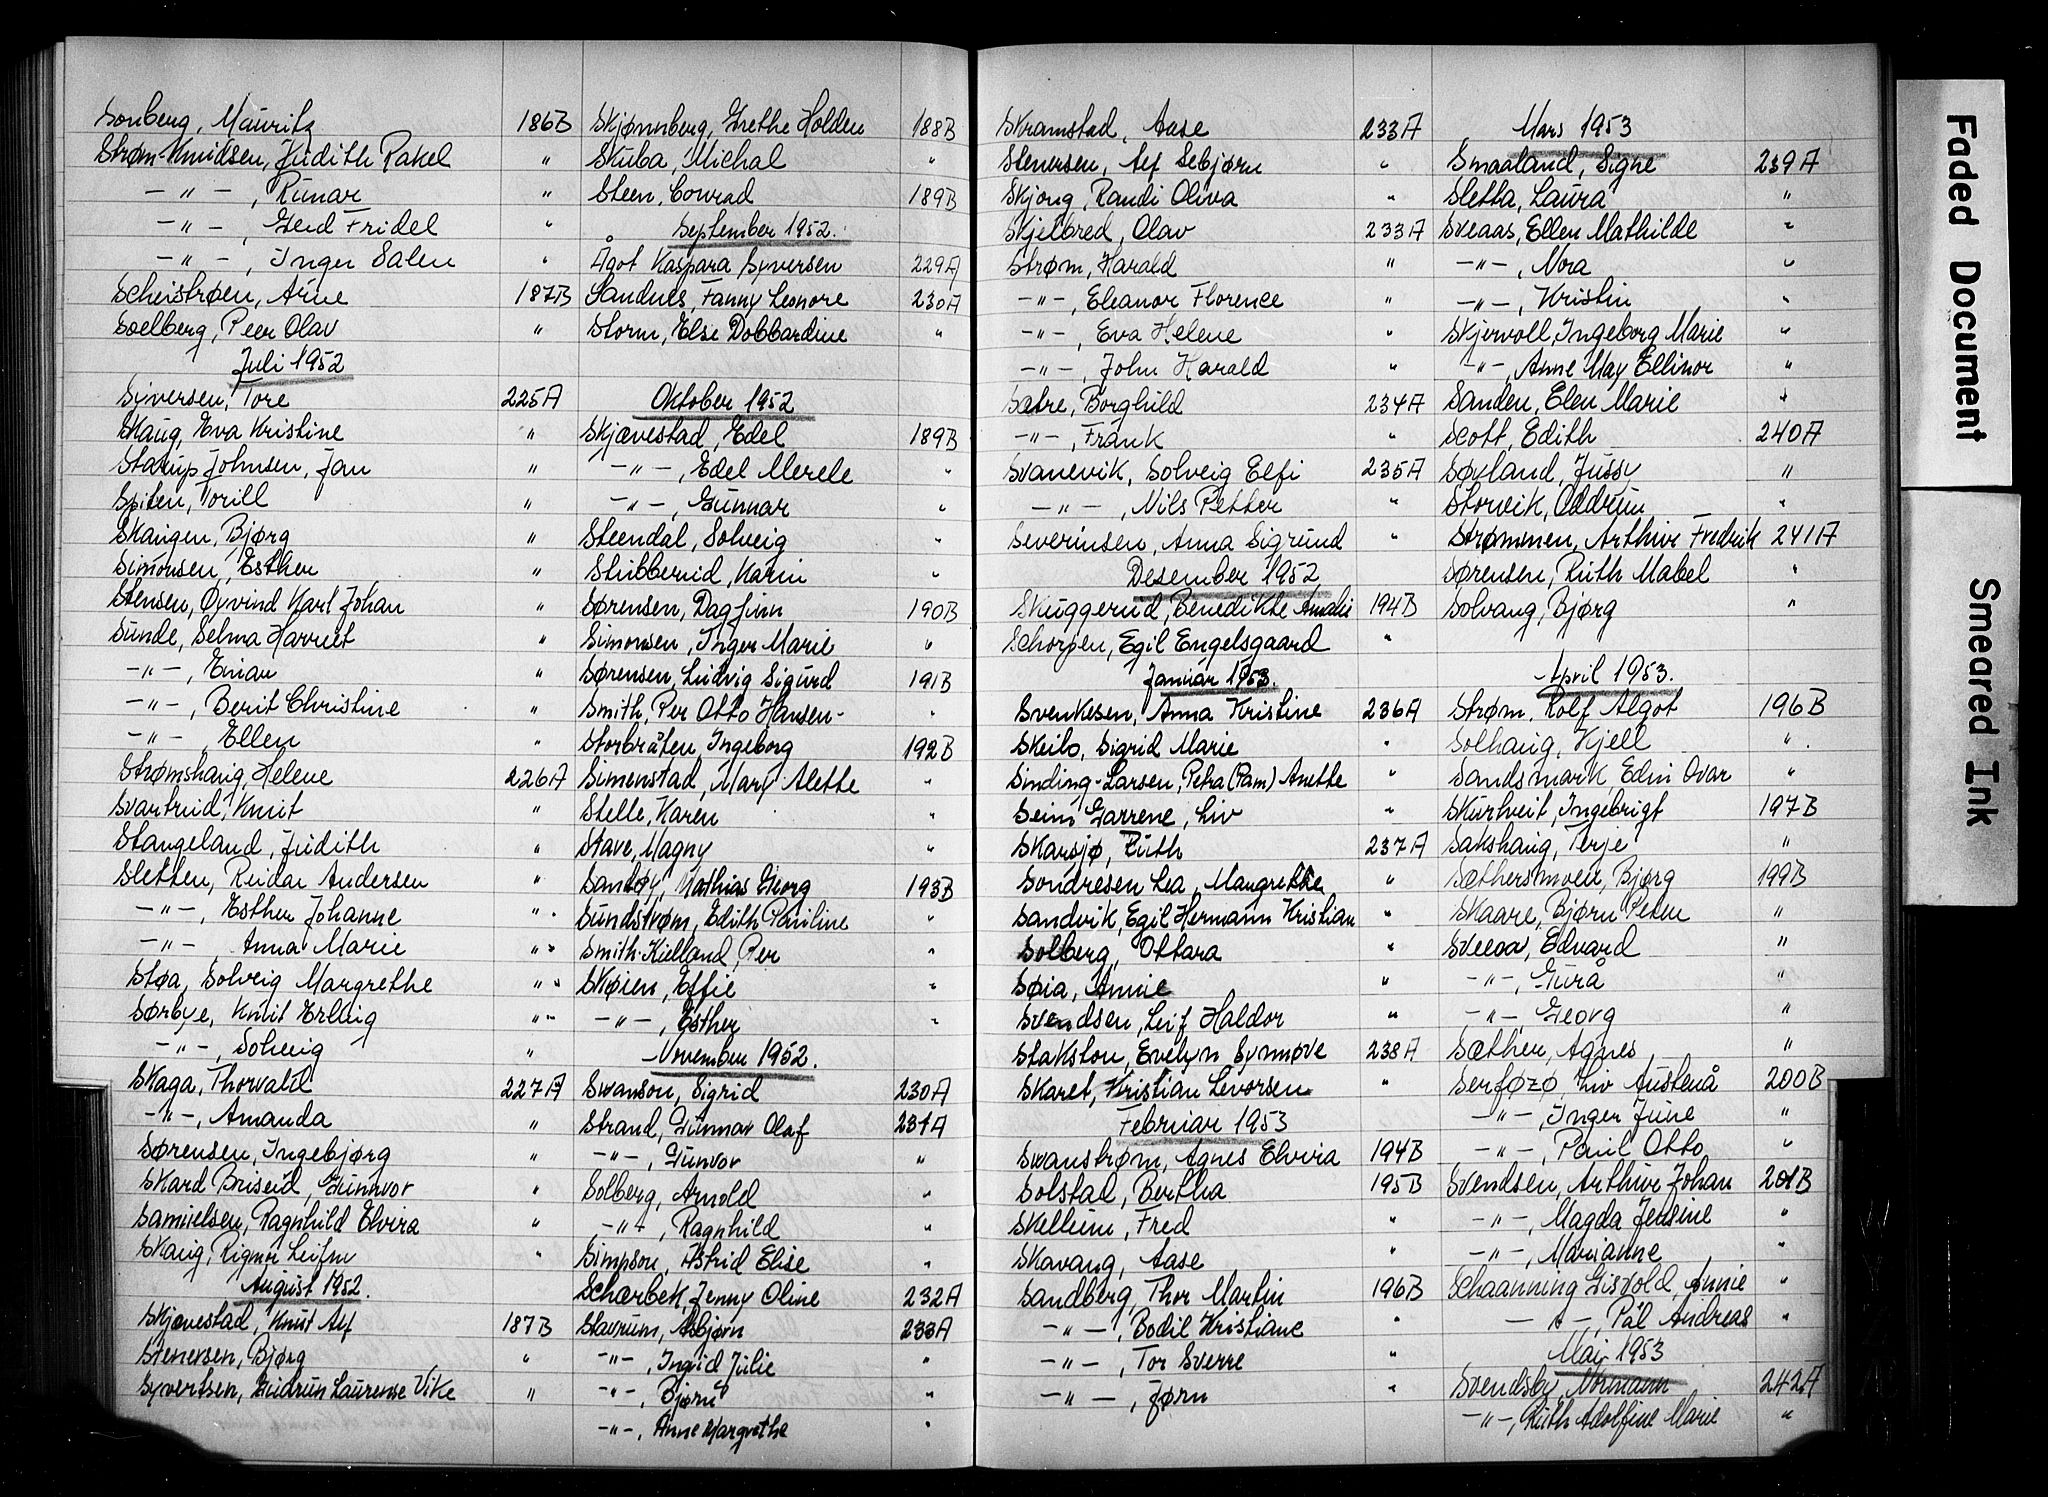 Sonberg, Mauritz 186B
Strøm-Knudsen, Judith Rakel "
-"-, Runar "
-"-, Gerd Fridel "
-"-, Inger Salen "
Scheistrøen, Arne 187B
Soelberg, Peer Olav "
Juli 1952
Syversen, Tore 225A
Skaug, Eva Kristine "
Starup Johnsen, Jan "
Spiten, Torill "
Skaugen, Bjørg "
Simonsen, Esther "
Stensen, Øyvind Karl Johan "
Sunde, Selma Harriet "
-"-, Einar "
-"-, Berit Christine "
-"-, Ellen "
Strømshaug, Helene 226A
Svartrud, Knut "
Stangeland, Judith "
Sletten, Reidar Andersen "
-"-, Esther Johanne "
-"- Anna Marie "
Støa, Solveig Margrethe "
Sørbye, Knut Erling "
-"-, Solveig "
Skaga, Thorvald 227A
-"-, Amanda "
Sørensen, Ingebjørg "
Skard Briseid, Gunnvor "
Samuelsen, Ragnhild Elvira "
Skaug, Rigmor Leifm "
August 1952.
Skjævestad, Knut Alf 187B
Stenersen, Bjørg "
Syvertsen, Gudrun Laurense Vike "
Skjønnberg, Grethe Holden 188B
Skuba, Michal "
Steen, Conrad 189B
September 1952.
Ågot Kaspara Syversen 229A
Sandnes, Fanny Leonore 230A
Storm, Else Dobbardine "
Oktober 1952
Skjævestad, Edel 189B
-"-, Edel Merele "
-"-, Gunnar "
Steendal, Solveig "
Stubberud, Karin "
Sørensen, Dagfinn 190B
Simonsen, Inger Marie "
Sørensen, Ludvig Sigurd 191B
Smith, Per Otto Hansen- "
Storbråten, Ingeborg 192B
Simenstad, Mary Alette "
Stelle, Karen "
Stave, Magny "
Sandøy, Mathias Georg 193B
Sundstrøm, Edith Pauline "
Smith-Kielland, Per "
Skøien, Effie "
-"-, Esther "
November 1952.
Swanson, Sigrid 230A
Strand, Gunnar Olaf 231A
-"-, Gunvor "
Solberg, Arnold "
-"-, Ragnhild "
Simpson, Astrid Elise "
Schærbek, Jenny Oline 232A
Stavrum, Asbjørn 233A
-"-, Ingrid Julie "
-"-, Bjørn "
-"-, Anne Margrethe "
Skramstad, Aase 233A
Stenersen, Alf Sebjørn "
Skjong, Randi Oliva "
Skjelbred, Olav 233A
Strøm, Harald "
-"-, Eleanor Florence "
-"-, Eva Helene "
-"-, John Harald "
Sætre, Borghild 234A
-"-, Frank "
Svanevik, Solveig Elfi 235A
-"-, Nils Petter "
Severinsen, Anna Sigrund "
Desember 1952
Skuggerud, Benedikte Amalie 194B
Schorpen, Egil Engelsgaard "
Januar 1953.
Svenkesen, Anna Kristine 236A
Skeilo, Sigrid Marie "
Sinding-Larsen, Petra (Pam) Anette "
Seim Garrene, Liv "
Skarsjø, Ruth 237A
Sondresen Lea, Margrethe "
Sandvik, Egil Hermann Kristian "
Solberg, Ottara "
Søia, Annie "
Svendsen, Leif Haldor "
Stakston, Evelyn Synnøve 238A
Skaret, Kristian Levorsen "
Februar 1953
Swanstrøm, Agnes Elvira 194B
Solstad, Bertha 195B
Skellum, Fred "
Skavang, Aase "
Sandberg, Thor Martin 196B
-"-, Bodil Kristiane "
-"-, Tor Sverre "
-"-, Jørn "
Mars 1953
Smaaland, Signe 239A
Sletta, Laura "
Sveaas, Ellen Mathilde "
-"-, Nora "
-"-, Kristin "
Skjervoll, Ingeborg Marie "
-"-, Anne May Ellinor "
Sanden, Elen Marie "
Scott, Edith 240A
Søyland, Jussy "
Storvik, Oddrun "
Strømmen, Arthur Fredrik 241A
Sørensen, Ruth Mabel "
Solvang, Bjørg "
April 1953.
Strøm, Rolf Algot 196B
Solhaug, Kjell "
Sandsmark Edin Ovar "
Skurtveit, Ingebrigt 197B
Sakshaug, Terje "
Sæthersmoen, Bjørg 199B
Skaare, Bjørn Peter "
Sveeov, Edvard "
-"-, Gurå "
-"- Georg "
Sæther, Agnes "
Serføzø, Liv Austenå 200B
-"-, Inger June "
-"-, Paul Otto "
Svendsen, Arthur Johan 201B
-"-, Magda Jensine "
-"-, Marianne "
Schaanning Gisvold, Annie "
-"-, Pål Andreas "
Mai 1953
Svendsby, Normann 242A
-"-, Ruth Adolfine Marie "
Faded Document
Smeared Ink